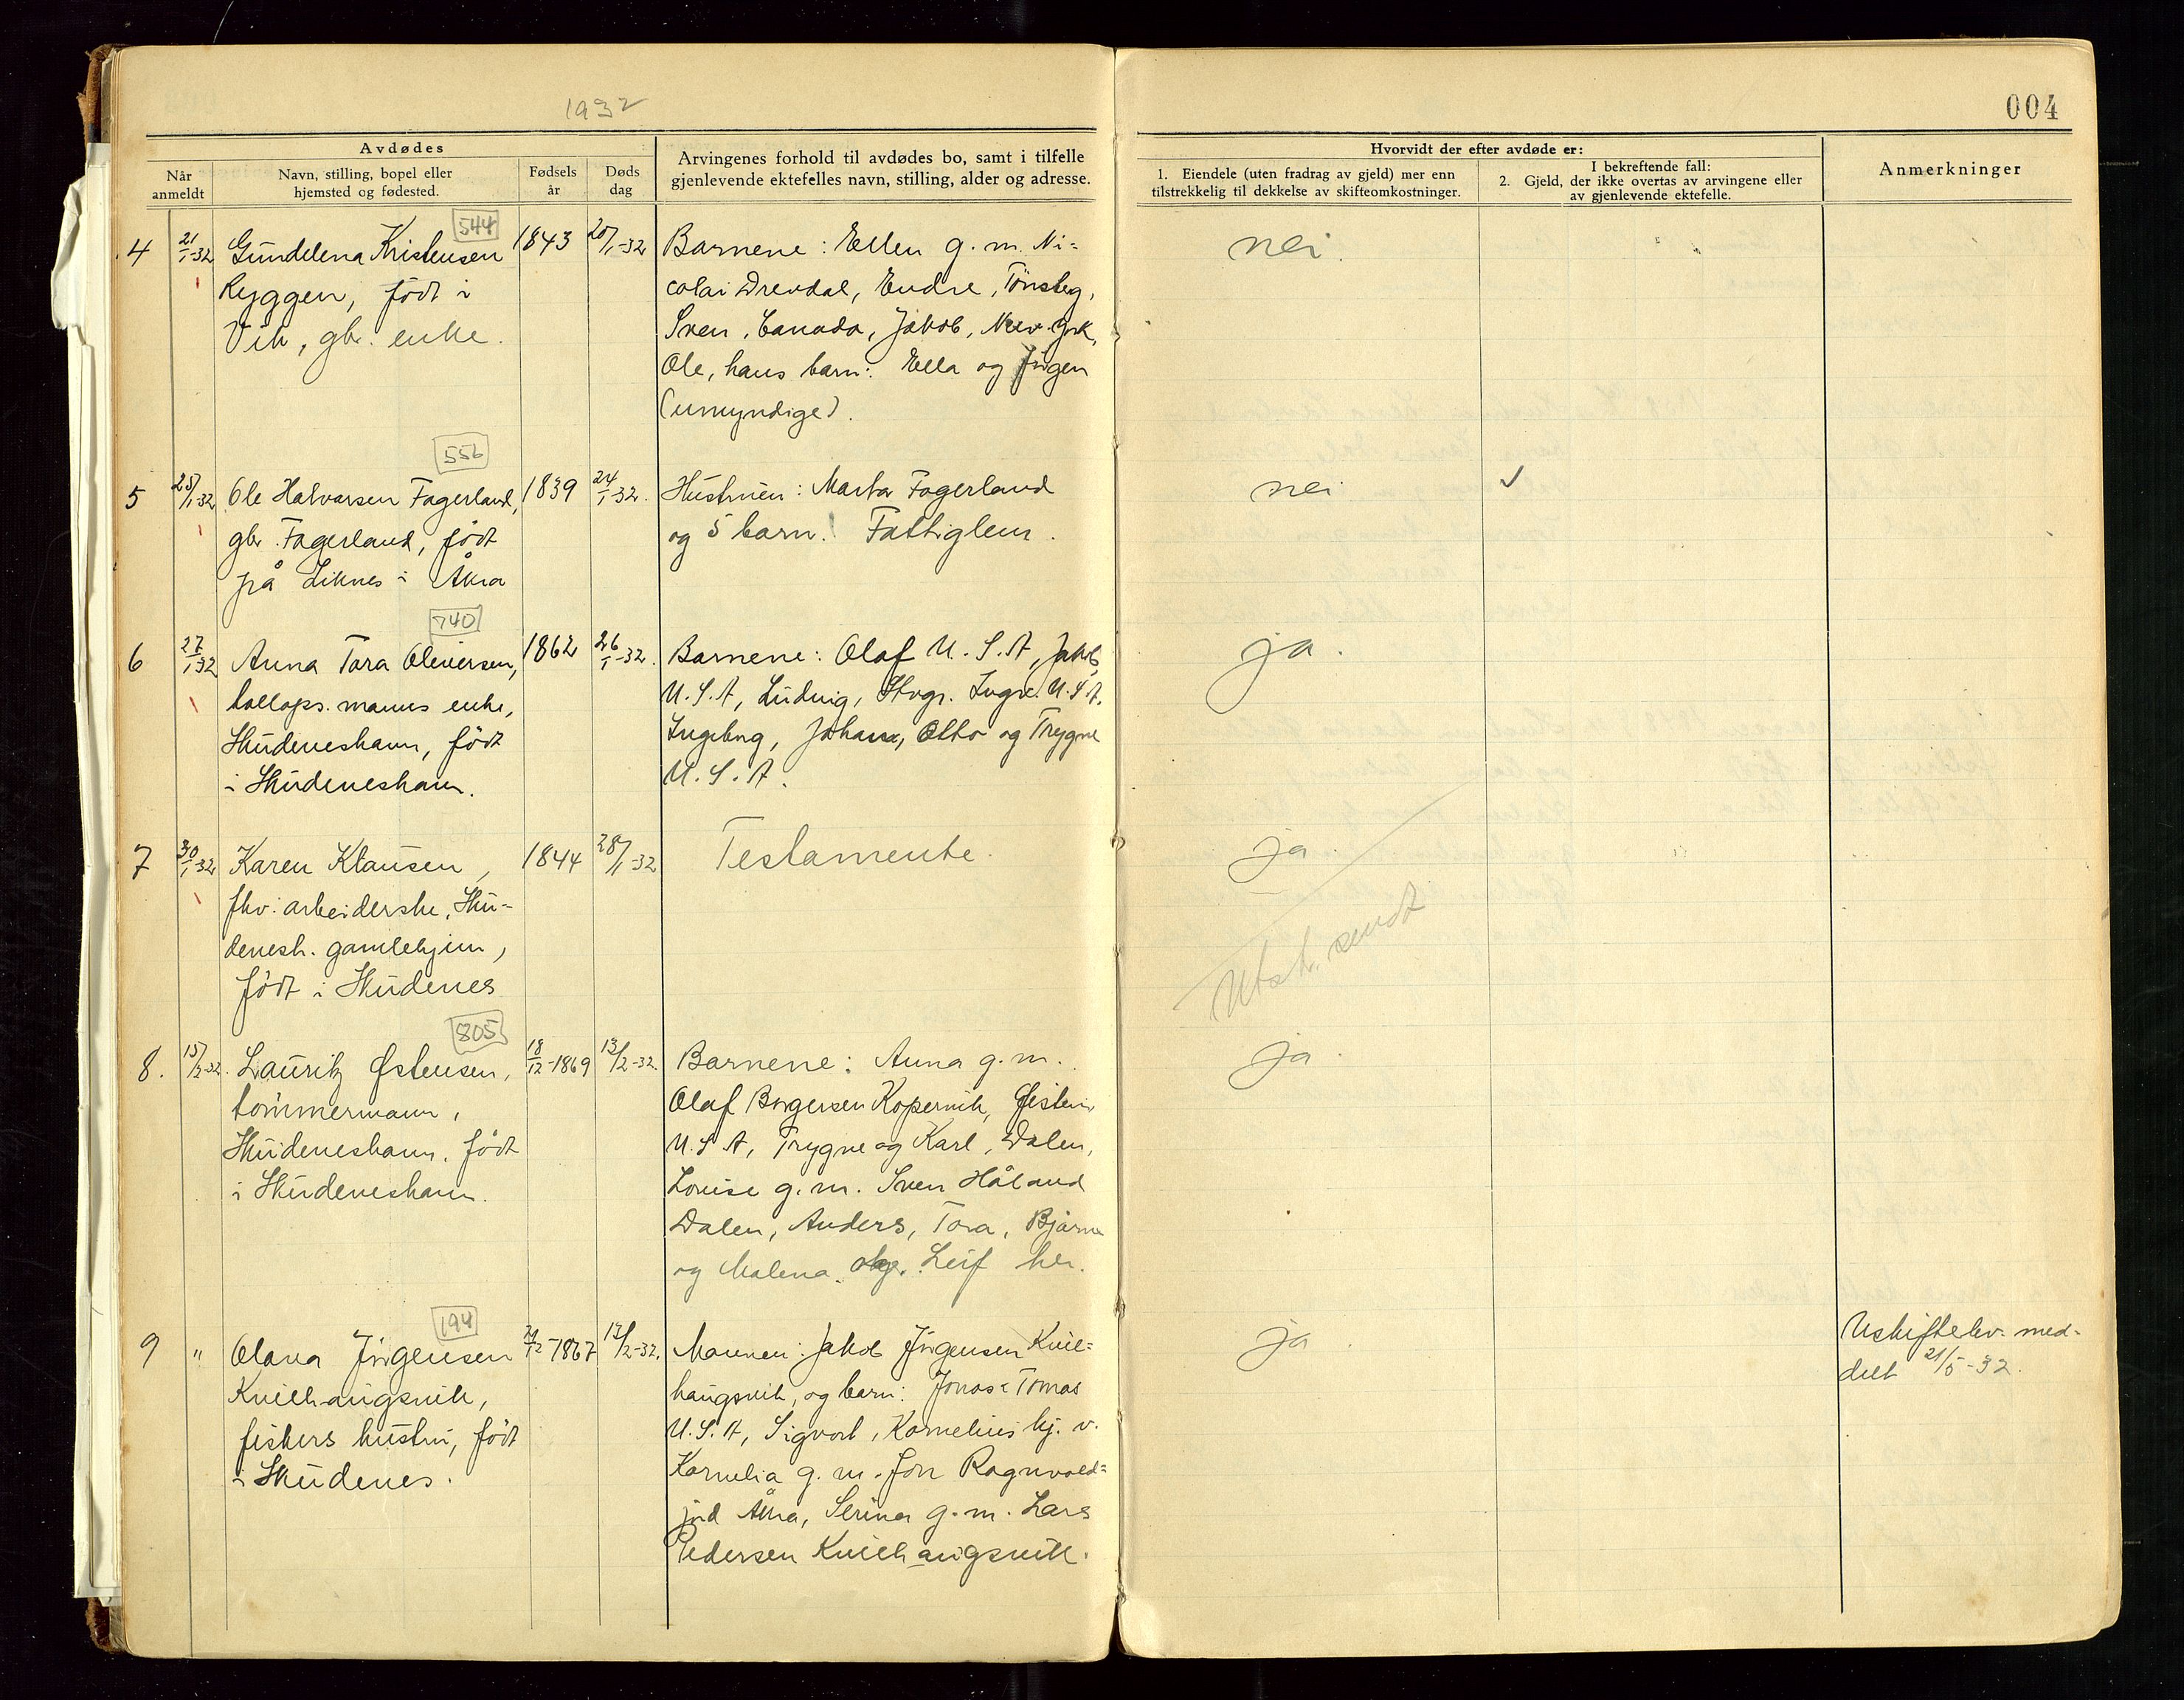 1932
004
Avdødes
Når
anmeldt
Navn, stilling, bopel eller
hjemsted og fødested.
Fødsels
år
Døds
dag
Arvingenes forhold til avdødes bo, samt i tilfelle
gjenlevende ektefelles navn, stilling, alder og adresse.
Hvorvidt der efter avdøde er:
1. Eiendele (uten fradrag av gjeld) mer enn
tilstrekkelig til dekkelse av skifteomkostninger.
I bekreftende fall:
2. Gjeld, der ikke overtas av arvingene eller
av gjenlevende ektefelle.
Anmerkninger
544
4 21/1-32 Gundelena Kristensen 1843 20/1-32
Ryggen, født i
Vik, gbr. enke.
Barnene: Ellen g. m. Ni-
colai Drevdal, Endre, Tönsbg,
Sven, Canada, Jakob, New York,
Ole, hans barn: Ella og
(umyndige).
nei.
556
5 25/1-32 Ole Halvorsen Fagerland, 1839 24/1-32.
gbr. Fagerland, født
på Liknes i Åkra
Hustruen: Marta Fagerland
og 5 barn. Fattiglem.
nei ✓
740
6 27/1-32 Anna Tora Oliversen, 1862 26/1-32.
tollops. manns enke,
Skudeneshavn, født
i Skudeneshavn.
Barnene: Olaf U.S.A, Jakob
U.S.A, Ludvig, Stvgr. U.S.A.
Ingeborg, Johan, Otto og Trygve
U.S.A.
ja.
7 30/1-32 Karen Klausen, 1844 28/1-32
fhv. arbeiderske, Sku-
denesh. gamlehjem,
født i Skudenes
Testamente.
ja.
Utskr. sendt
805
8. 15/2-32. Lauritz Østensen, 18/12-1869 13/2-32.
tömmermann,
Skudeneshavn, født
i Skudeneshavn.
Barnene: Anna g. m.
Olaf Børgersen Kopervik, Øistein
U.S.A, Trygve og Karl, Dalen,
Louise g. m. Sven Håland
Dalen, Anders, Tora, Bjarne
og Malena. Leif her.
ja.
194
9 " Olava Jörgensen 1867 12/2-32.
Kvilhaugsvik,
fiskers hustru, født
i Skudenes.
Mannen: Jakob Jörgensen Kvil-
haugsvik, og barn: Jonas & Tomas
U.S.A, Sigvart, Kornelius hj. v.
Kornelia g. m. Jon Ragnvald-
jord Åkra, Serina g. m. Lars
Pedersen Kvilhaugsvik.
ja.
Uskiftebev. med-
delt 21/5-32.